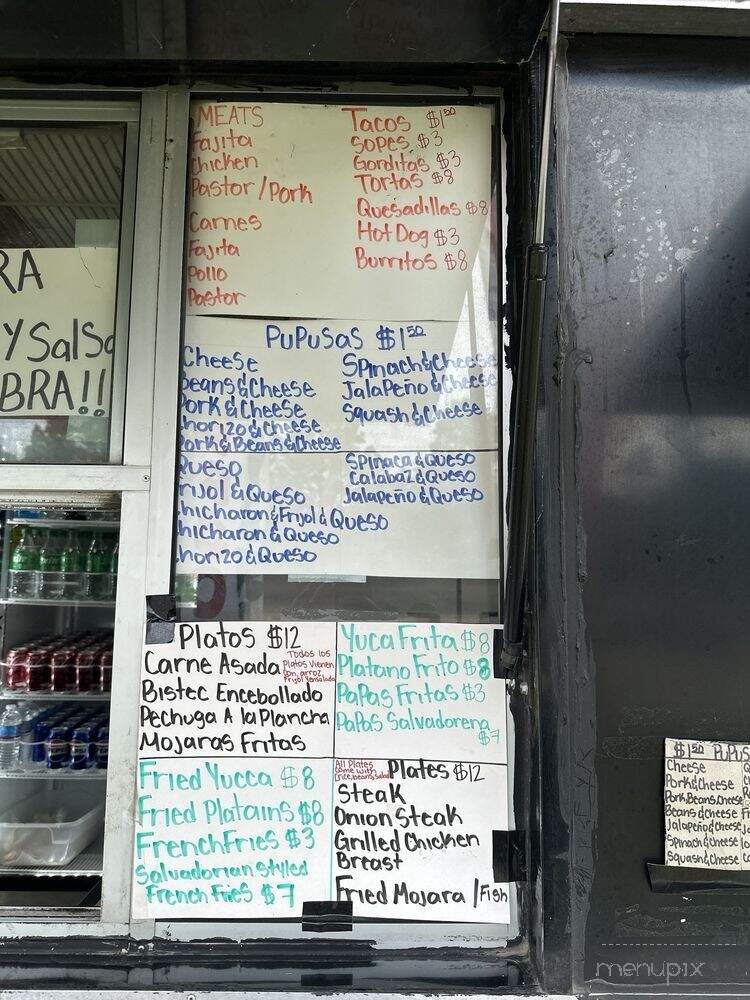 RA
Y Salsa
BRA!!
MEATS
Fajita
Chicken
Pastor / Pork
Carnes
Fajita
Pollo
Pastor
Tacos $1.50
Sopes $3
Gorditas $3
Tortas $8
Quesadillas $8
Hot Dog $3
Burritos $8
PuPusas $1.50
Cheese
Beans & Cheese
Pork & Cheese
horizo & Cheese
Pork & Beans & Cheese
Spinach & Cheese
Jalapeño & Cheese
Squash & Cheese
Queso
rijol & Queso
hicharon & Frijol & Queso
hicharon & Queso
horizo & Queso
Spinaca & Queso
Calabaz & Queso
Jalapeño & Queso
Platos $12
Todos los
Platos vienen
con arroz
Frijol & ensalada
Carne Asada
Bistec Encebollado
Pechuga A la Plancha
Mojaras Fritas
Yuca Frita $8
Platano Frito $8
Papas Fritas $3
Papas Salvadorena
$7
Fried Yucca $8
Fried Platains $8
French Fries $3
Salvadorian Styled
French Fries $7
All Plates
come with
rice, beans, salad
Plates $12
Steak
Onion Steak
Grilled Chicken
Breast
Fried Mojara / Fish
$1.50 PuPus
Cheese
Pork & Cheese
Pork Beans Cheese
Beans & Cheese
Jalapeño & Cheese
Spinach & Cheese
Squash & Cheese
menupix